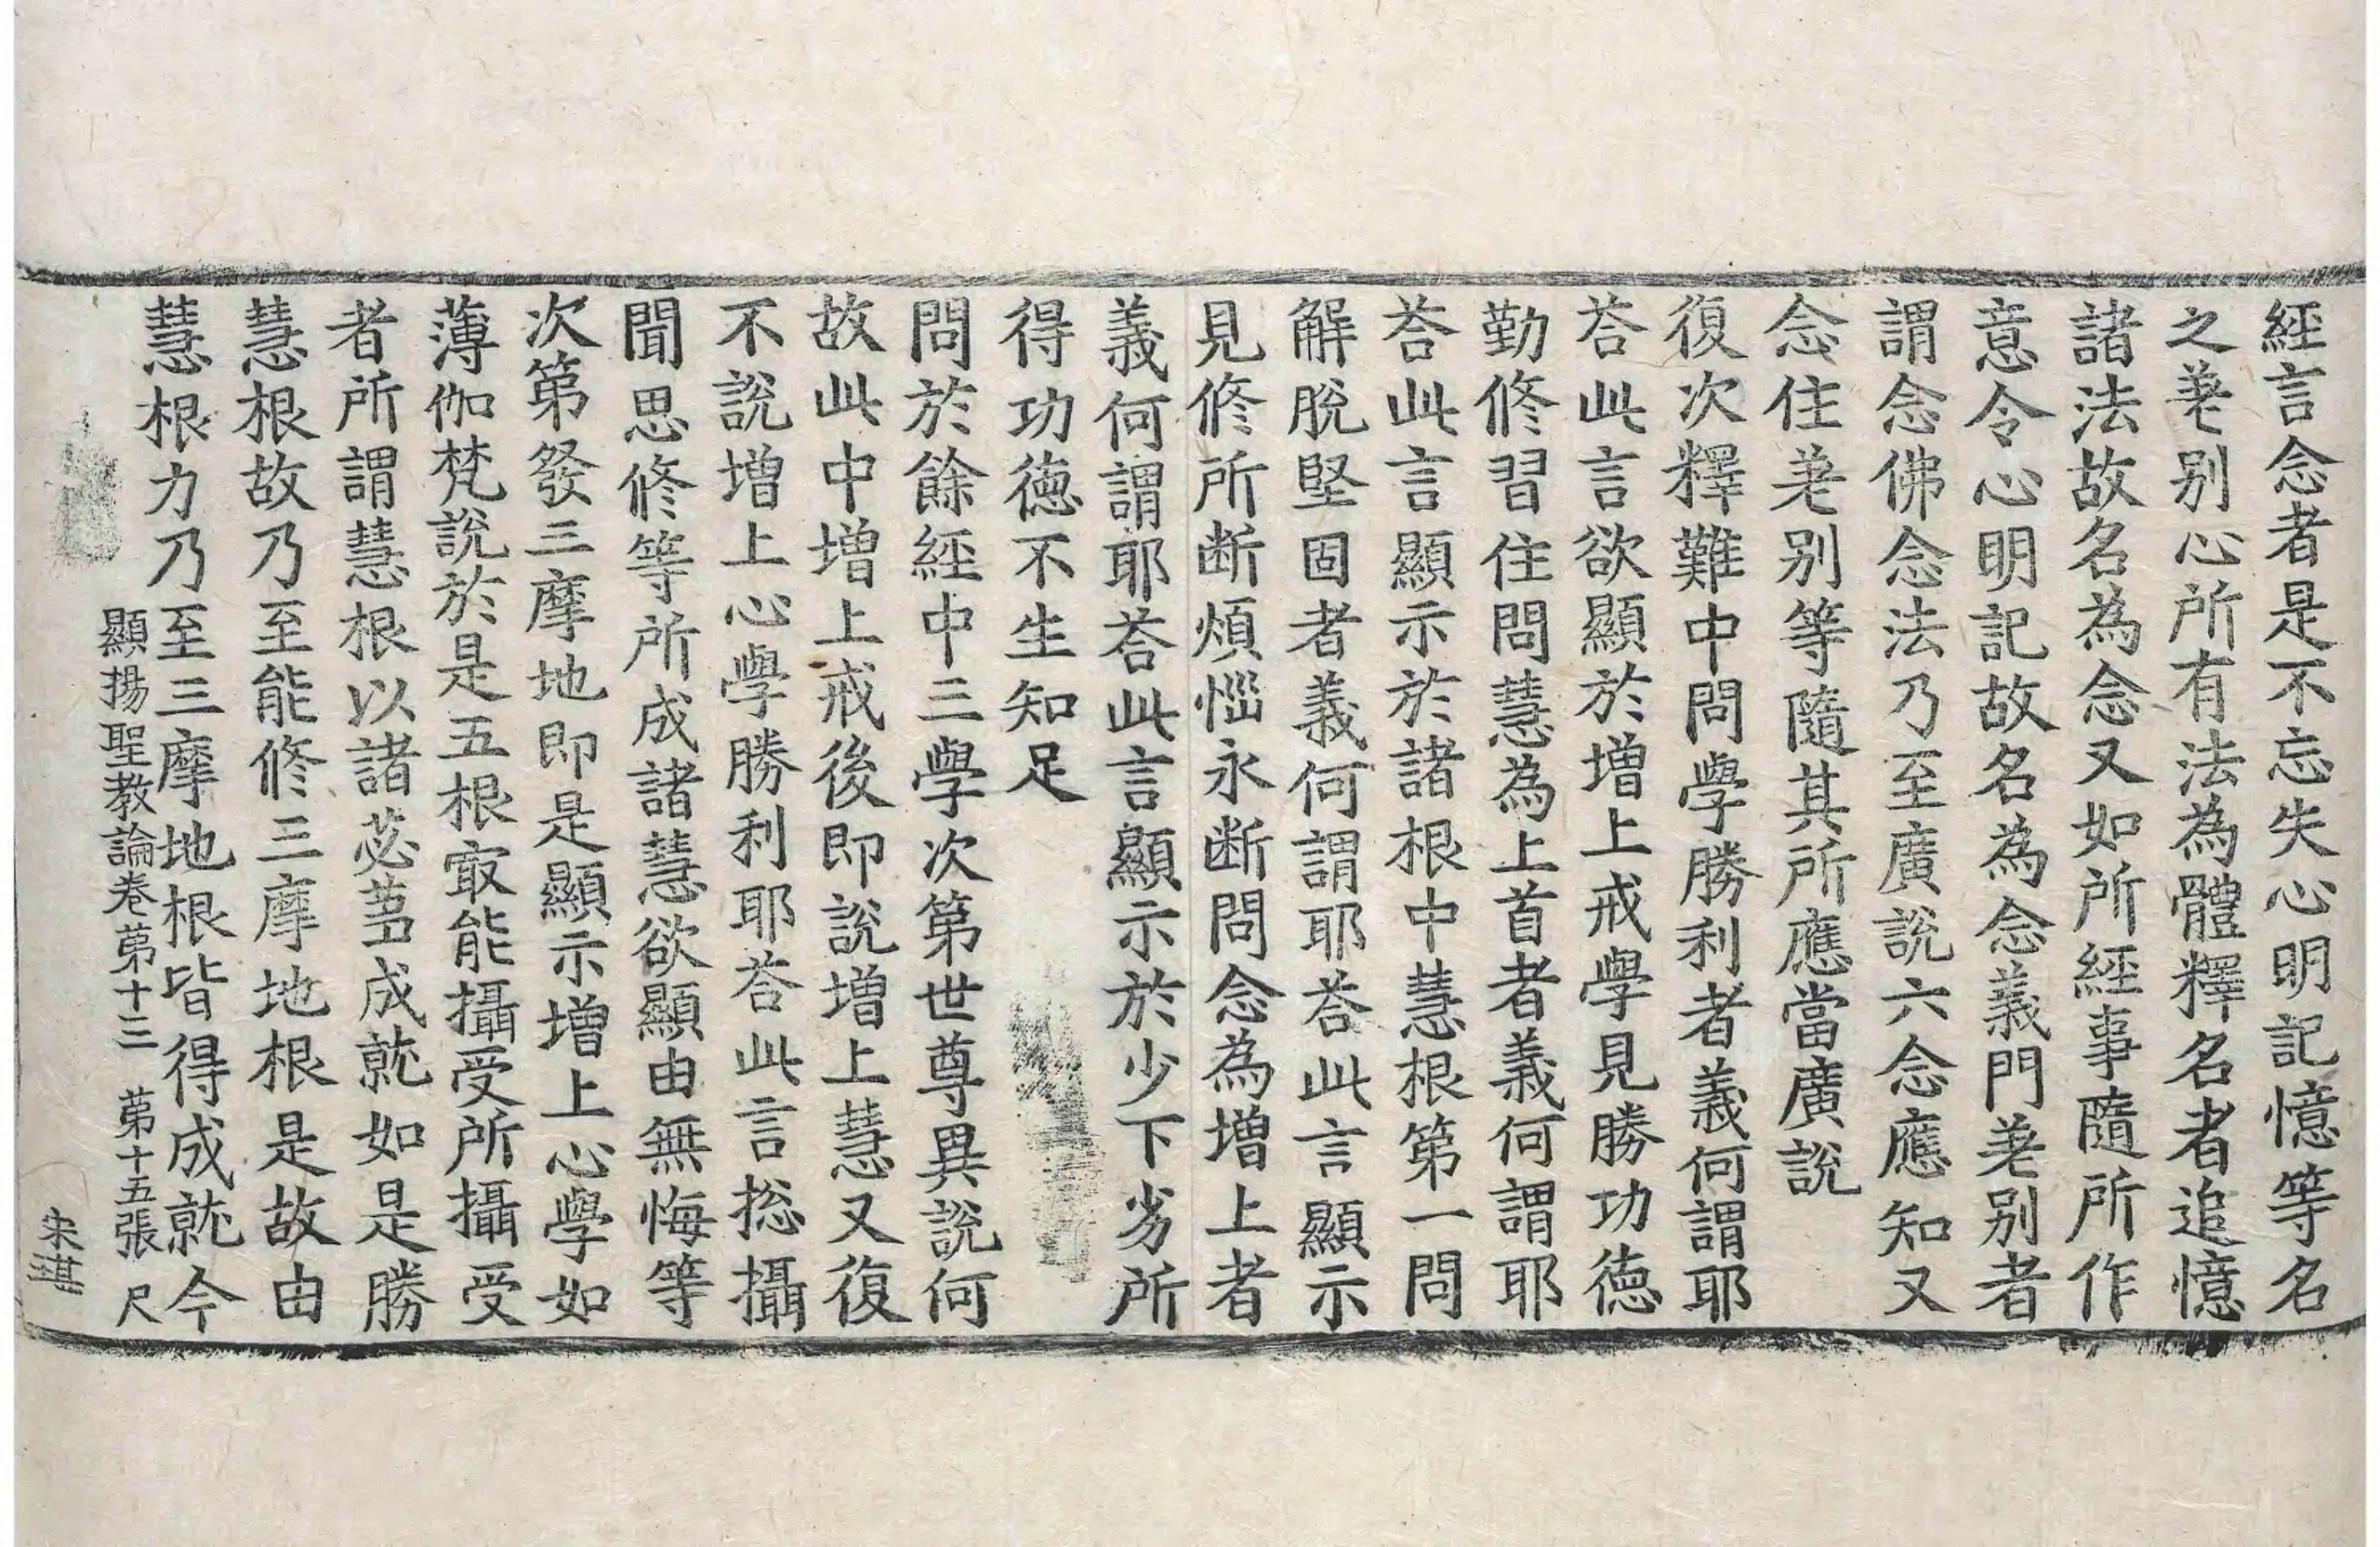 經言念者是不忘失心明記憶等名
之差别心所有法為體釋名者追憶
諸法故名為念又如所經事隨所作
意令心明記故名為念義門差别者
謂念佛念法乃至廣說六念應知又
念住差别等隨其所應當廣說
復次釋難中問學勝利者義何謂耶
荅此言欲顯於增上戒學見勝功徳
勤修習住問慧為上首者義何謂耶
荅此言顯示於諸根中慧根第一問
解脫堅固者義何謂耶荅此言顯示
見修所断煩惱永断問念為增上者
義何謂耶荅此言顯示於少下劣所
得功徳不生知足
問於餘經中三學次第世尊異說何
故此中增上戒後即說增上慧又復
不說增上心學勝利耶荅此言揔攝
聞思修等所成諸慧欲顯由無悔等
次第發三摩地即是顯示增上心學如
薄伽梵說於是五根㝡能攝受所攝受
者所謂慧根以諸苾蒭成就如是勝
慧根故乃至能修三摩地根是故由
慧根力乃至三摩地根皆得成就今
顯揚聖教論卷苐十三 苐十五張 尺
宋湛